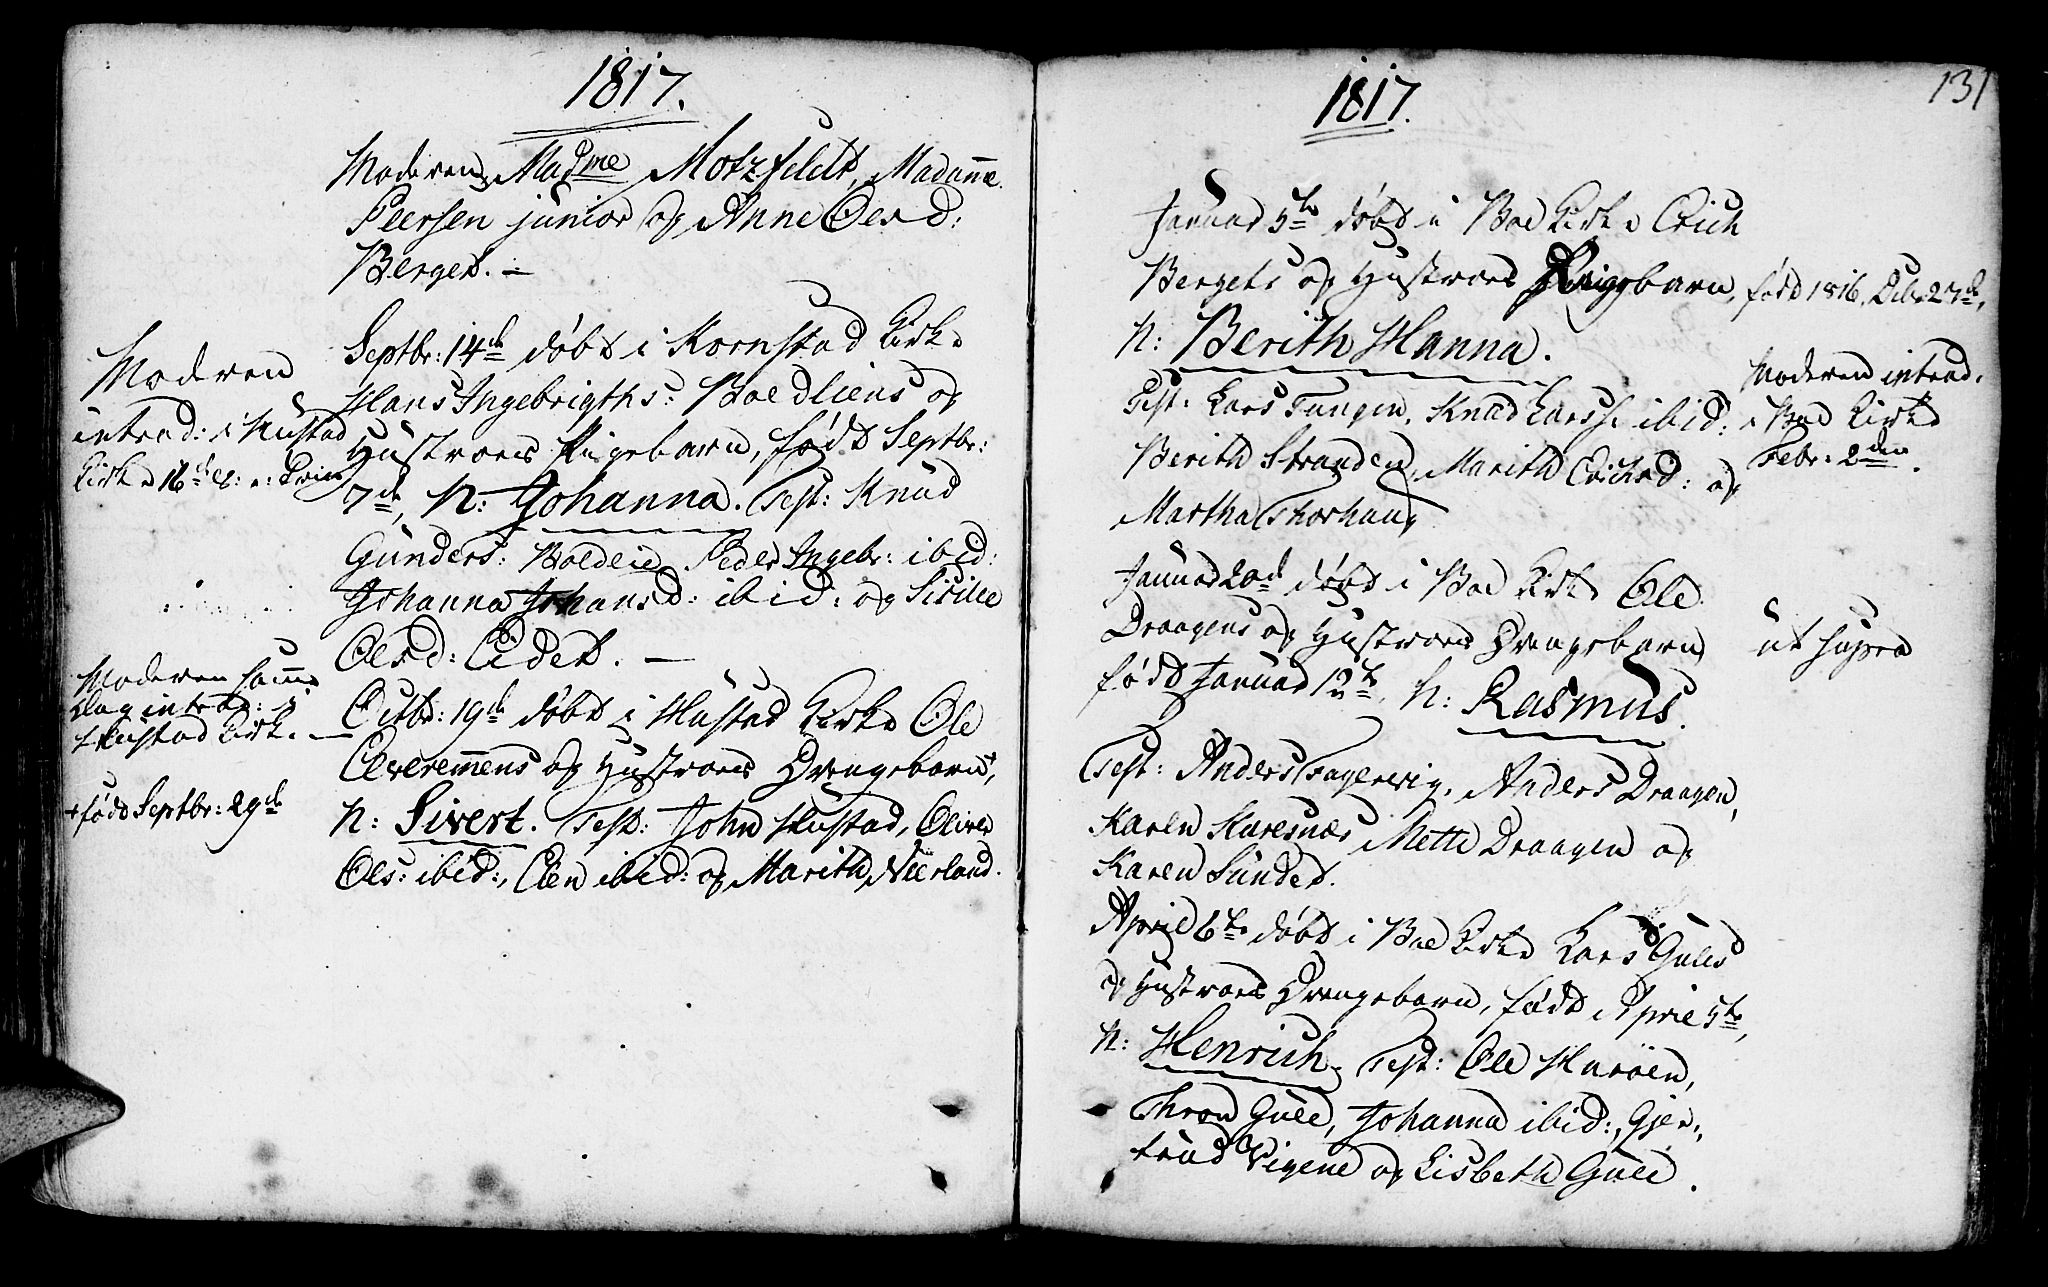 1817.
Moderen, Mad<sup>me</sup> Motzfeldt, Madame
Peersen junior og Anne Olesd:
Berget. —
Septbr: 14de døbt i Kornstad Kirke
Hans Ingebrigths: Boedliens og
Hustroes Pigebarn, født Septbr:
7de, N: Johanna. Test: Knud
Gunders: Peder Ingebr: ibid:
Johanna Johansd: ibid: og Sicilie
Olesd: Eidet. —
Octbr: 19de døbt i Hustad Kirke Ole
og Hustroes Drengebarn,+
N: Sivert. Test: John Hustad, Oliver
Ols: ibid:, Elen ibid: og Marith Neerland.
Moderen
introd: i Hustad
Kirke 16de
Moderen samme
Dag introd: i
Hustad Kirke. —
+ født Septbr: 29de
1817.
131
Januar 5te døbt i Boe Kirke Erich
Bergets og Hustroes Pigebarn, født 1816, Decbr 27de,
N: Berith Hanna.
Test: Lars Tungen, Knud Larss: ibid:
Berith Stranden, Marith Erichsd: og
Martha Thorhaug
Moderen introd.
i Boe Kirke
Febr: 2den.
Januar 20de døbt i Boe Kirke Ole
Draagens og Hustroes Drengebarn
født Januar 12te, N: Rasmus.
Test: Anders Fagervig, Anders Draagen,
Karen Karesnæs, Mette Draagen og
Karen Sundet.
ut supra
April 6te døbt i Boe Kirke Lars Gules
og Hustroes Drengebarn, født April 5te,
N: Henrich. Test: Ole Harøen,
Thron Gule, Johanna ibid:, Gjer-
trud Vigene og Lisbeth Gule.